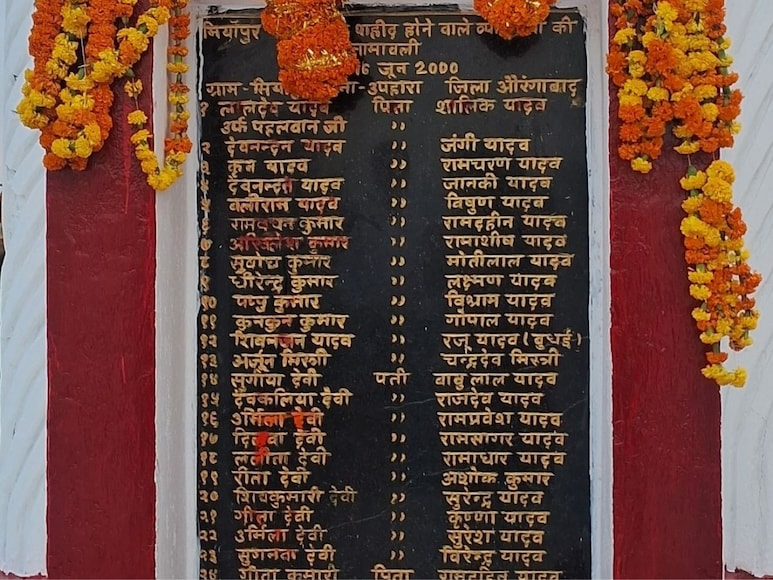 मियाँपुर शहीद होने वाले की
नामावली
16 जून 2000
ग्राम- उपहारा जिला औरंगाबाद
१ लालदेव यादव पिता शालिक यादव
उर्फ पहलवान जी ,,
२ देवनन्दन यादव ,, जंगी यादव
३ यादव ,, रामचरण यादव
४ देवनन्दन यादव ,, जानकी यादव
५ बलीराम यादव ,, विषुण यादव
६ कुमार ,, रामदहीन यादव
७ अखिलेश कुमार ,, रामाशीष यादव
८ सुबोध कुमार ,, मोतीलाल यादव
९ धीरेन्द्र कुमार ,, लक्ष्मण यादव
१० पप्पु कुमार ,, विश्राम यादव
११ कुनकुन कुमार ,, गोपाल यादव
१२ शिवनन्दन यादव ,, रजु यादव (बुधई)
१३ अर्जुन मिस्त्री ,, चन्द्रदेव मिस्त्री
१४ देवी पती बाबुलाल यादव
१५ देवकलिया देवी ,, राजदेव यादव
१६ उर्मिला देवी ,, रामप्रवेश यादव
१७ देवी ,, रामसागर यादव
१८ ललीता देवी ,, रामाधार यादव
१९ रीता देवी ,, अशोक कुमार
२० शिवकुमारी देवी ,, सुरेन्द्र यादव
२१ गीता देवी ,, कृष्णा यादव
२२ उर्मिला देवी ,, सुरेश यादव
२३ देवी ,, विरेन्द्र यादव
२४ गीता कुमारी पिता यादव